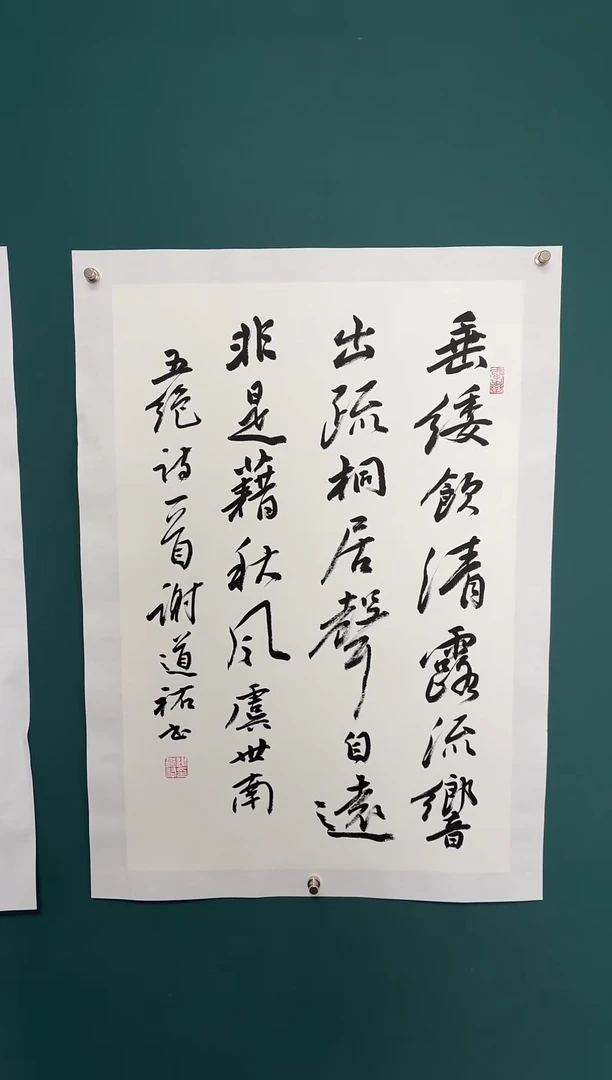 垂緌飲清露流響
出疏桐居聲自遠
非是藉秋風虞世南
五绝诗一首谢道祐书